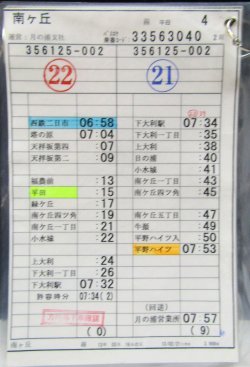 南ヶ丘
平日
4
運営:月の浦支社
33563040
356125-002
356125-002
22
21
西鉄二日市 06:58
塔の原 07:04
天拝坂第四 :07
天拝坂第二 :09
福農前 :13
平田 :15
緑ケ丘 :17
南ケ丘四ツ角 :19
南ケ丘一丁目 :21
小水城 :22
上大利 :24
下大利一丁目 :26
下大利駅 07:32
許容時分 :07:34(2)
(0)
下大利駅 07:34
下大利一丁目 :35
上大利 :38
日の浦 :40
小水城 :41
南ケ丘一丁目 :43
南ケ丘四ツ角 :45
南ケ丘五丁目 :47
牛頸 :49
平野ハイツ入 :50
平野ハイツ 07:53
(回送)
月の浦営業所 07:57
(9)
南ヶ丘